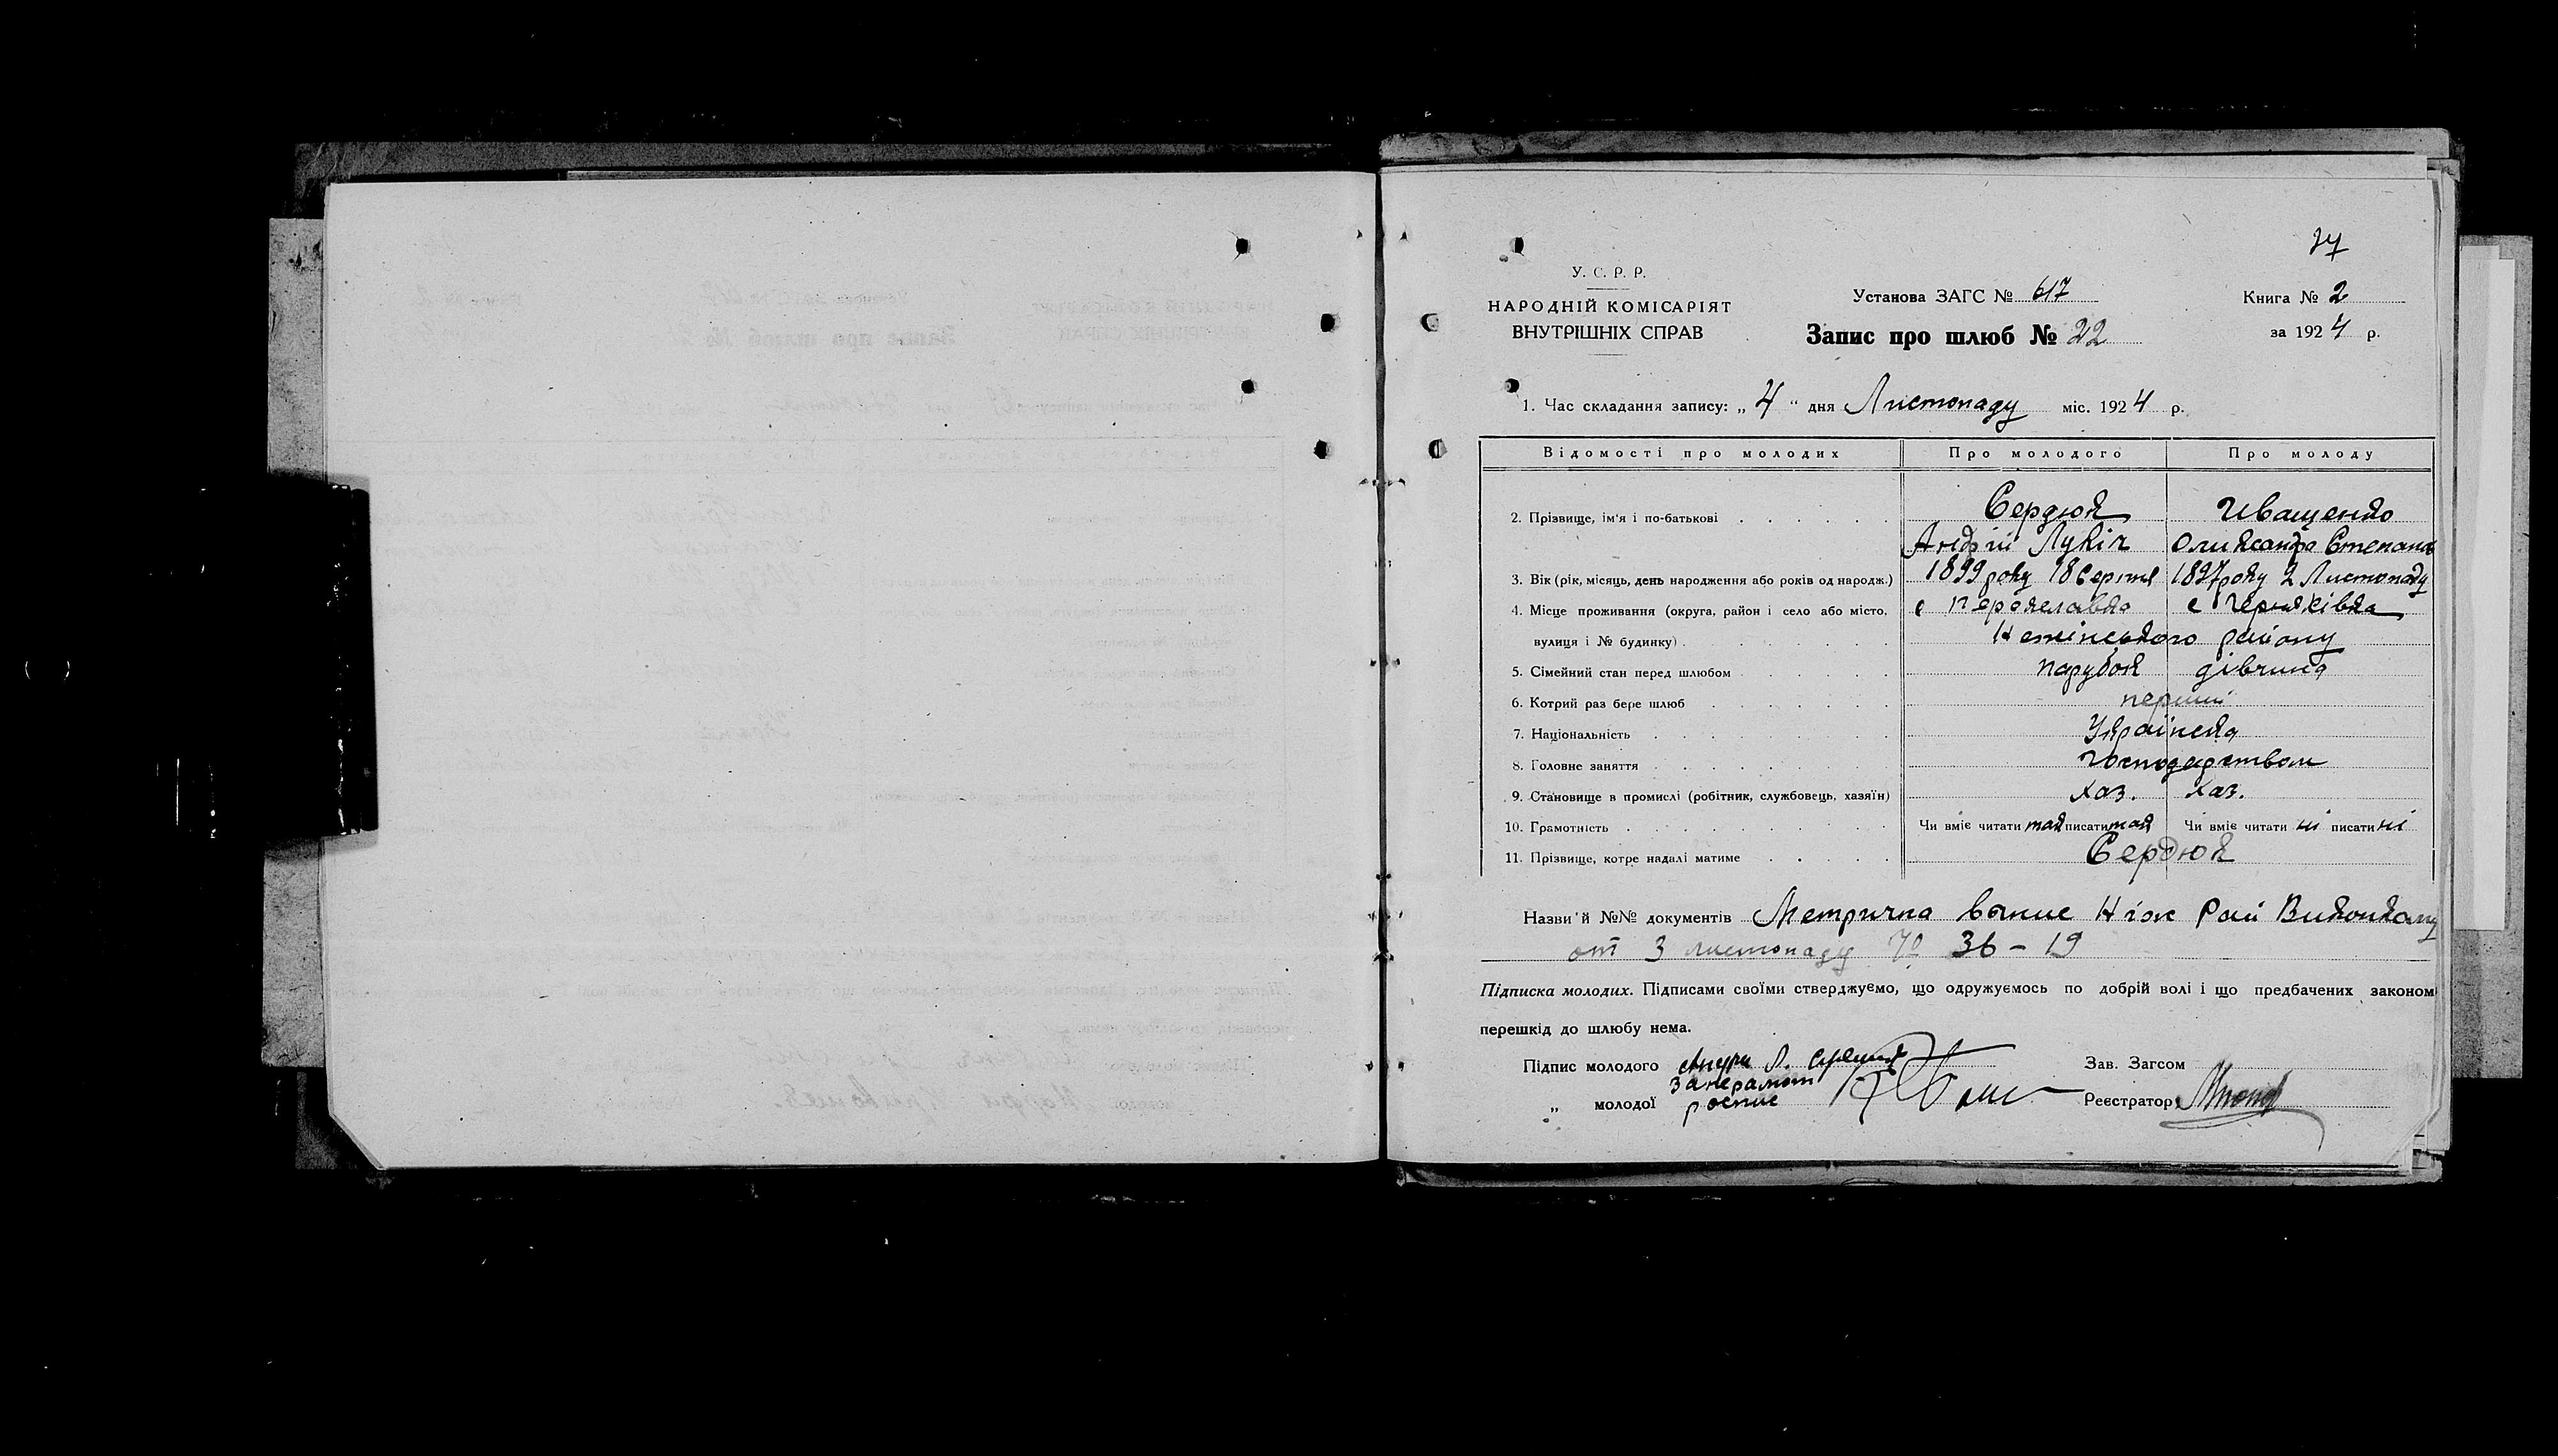 27
У. С. Р. Р.
НАРОДНІЙ КОМІСАРІЯТ
ВНУТРІШНІХ СПРАВ
Установа ЗАГС № 617
Запис про шлюб № 22
Книга № 2
за 1924 р.
1. Час складання запису: „4“ дня Листопаду міс. 1924 р.
Відомості про молодих Про молодого Про молоду
2. Прізвище, ім'я і по-батькові Сердюк Иващенко
Андрій Лукіч Олександра Степанів
3. Вік (рік, місяць, день народження або років од народж.) 1899 року 18 Серпня 1897 року 2 Листопаду
4. Місце проживання (округа, район і село або місто, с Переяславка с Черняківка
вулиця і № будинку) Ніжінського району
5. Сімейний стан перед шлюбом парубок дівчина
6. Котрий раз бере шлюб перший
7. Національність Українска
8. Головне заняття Господарством
9. Становище в промислі (робітник, службовець, хазяїн) хаз. хаз.
10. Грамотність Чи вміє читати так писати так Чи вміє читати ні писати ні
11. Прізвище, котре надалі матиме Сердюк
Назви й №№ документів Метрична випис Ніж Рай Виконкому
от 3 листопаду № 36 – 19
Підписка молодих. Підписами своїми стверджуємо, що одружуємось по добрій волі і що предбачених законом
перешкід до шлюбу нема.
Підпис молодого Андри Л. Сердюк Зав. Загсом
за неграмот
„ молодої роспис Реєстратор